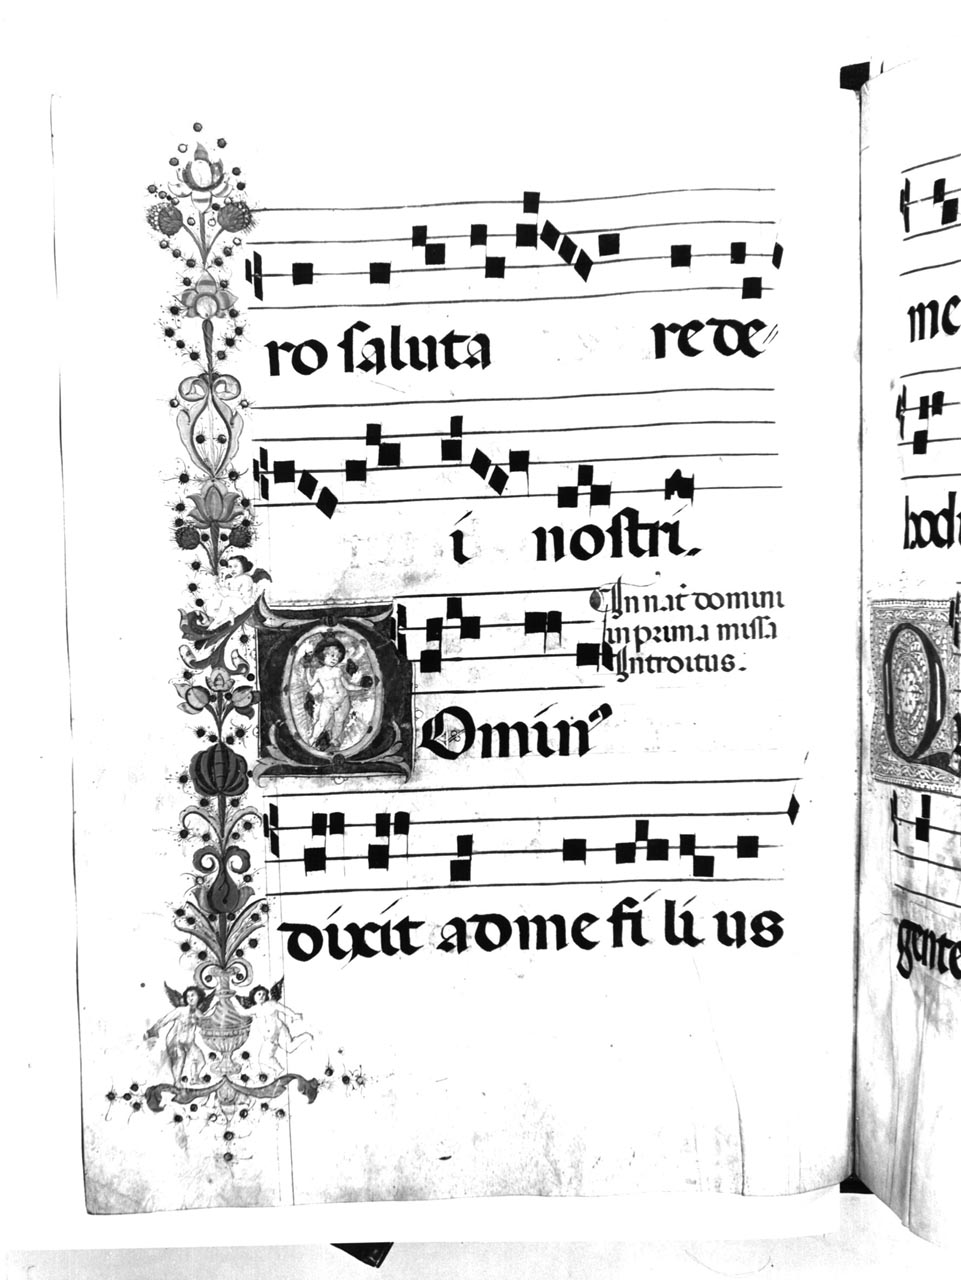 ro saluta re de
i nostri.
In nat domini
in prima missa
Introitus.
Domin⁹
dixit ad me fi li us
me
hodi
gente